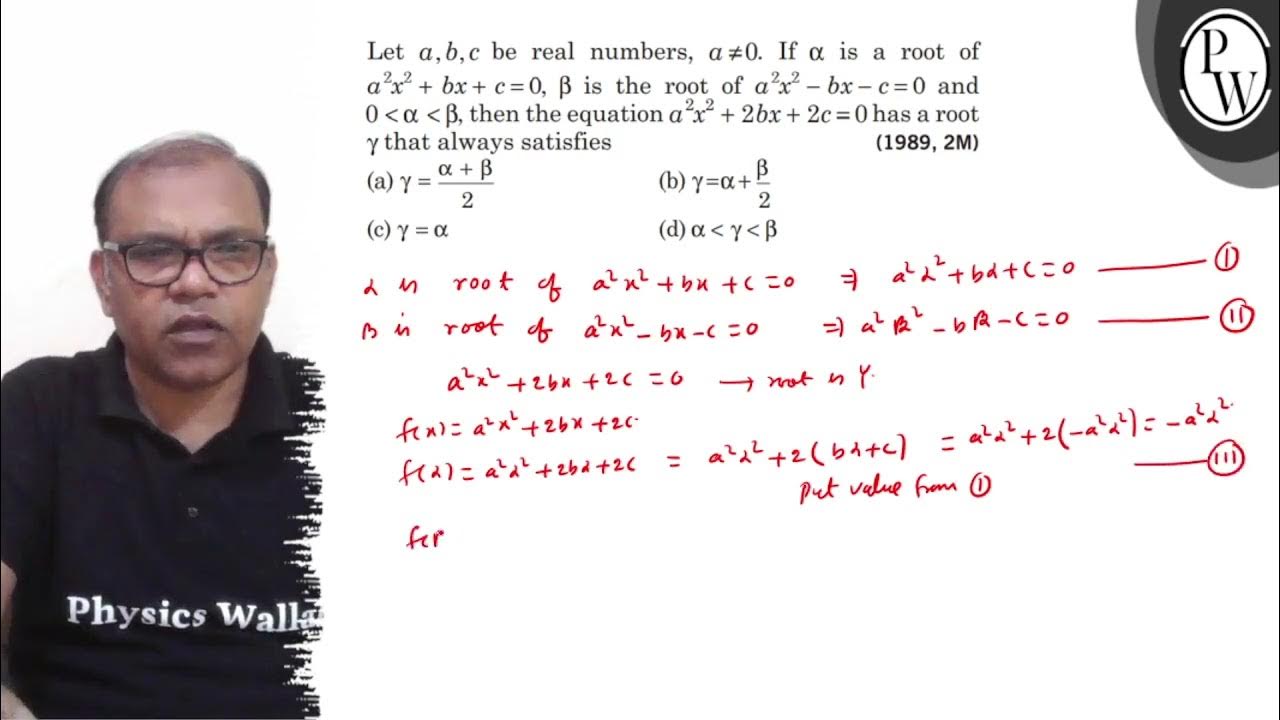 P
W
Let a, b, c be real numbers, a ≠ 0. If α is a root of
a²x² + bx + c = 0, β is the root of a²x² − bx − c = 0 and
0 < α < β, then the equation a²x² + 2bx + 2c = 0 has a root
γ that always satisfies (1989, 2M)
(a) γ = (α + β)/2 (b) γ = α + β/2
(c) γ = α (d) α < γ < β
α is root of a²x² + bx + c = 0 ⇒ a²α² + bα + c = 0 — I
β is root of a²x² − bx − c = 0 ⇒ a²β² − bβ − c = 0 — II
a²x² + 2bx + 2c = 0 → root is γ.
f(x) = a²x² + 2bx + 2c.
f(α) = a²α² + 2bα + 2c = a²α² + 2(bα + c) = a²α² + 2(−a²α²) = −a²α². — III
Put value from I
Physics Walla